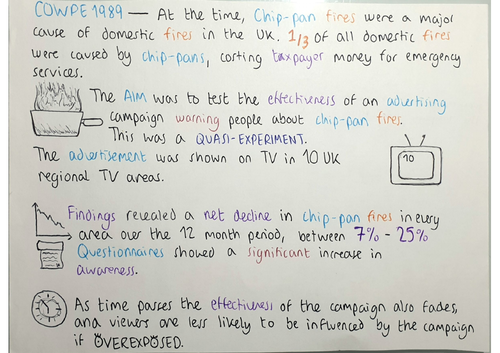 COWPE 1989 — At the time, Chip-pan fires were a major
cause of domestic fires in the UK. 1/3 of all domestic fires
were caused by chip-pans, costing taxpayer money for emergency
services.
The Aim was to test the effectiveness of an advertising
campaign warning people about chip-pan fires.
This was a QUASI-EXPERIMENT.
The advertisement was shown on TV in 10 UK
regional TV areas.
10
Findings revealed a net decline in chip-pan fires in every
area over the 12 month period, between 7% - 25%
Questionnaires showed a significant increase in
awareness.
As time passes the effectiveness of the campaign also fades,
and viewers are less likely to be influenced by the campaign
if OVEREXPOSED.